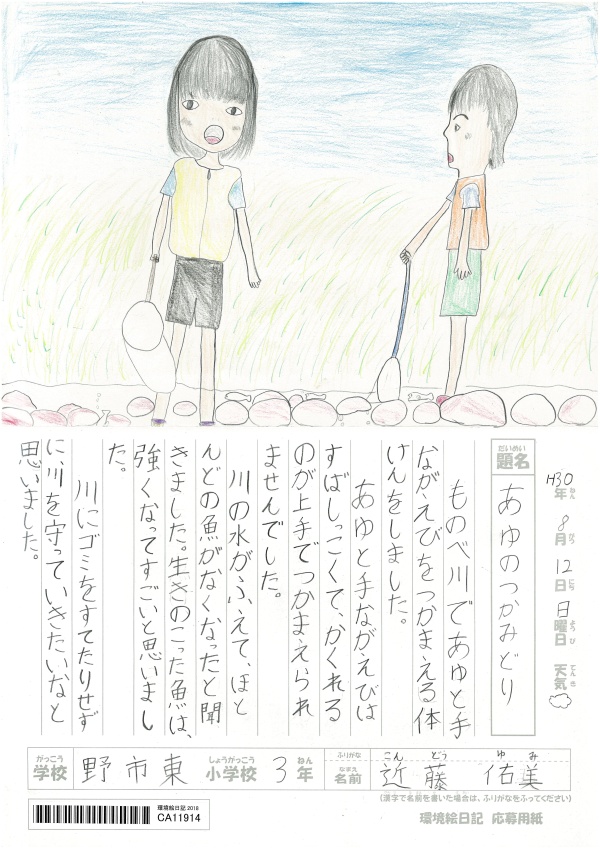 題名 だいめい
あゆのつかみどり
H30年ねん 8月がつ 12日にち 日曜日ようび 天気てんき
ものべ川であゆと手
ながえびをつかまえる体
けんをしました。
あゆと手ながえびは
すばしっこくて、かくれる
のが上手でつかまえられ
ませんでした。
川の水がふえて、ほと
んどの魚がなくなったと聞
きました。生きのこった魚は、
強くなってすごいと思いまし
た。
川にゴミをすてたりせず
に、川を守っていきたいなと
思いました。
がっこう しょうがっこう ねん
学校 野市東 小学校 3年
ふりがな こん どう ゆ み
なまえ
名前 近藤 佑美
(漢字で名前を書いた場合は、ふりがなをふってください)
環境絵日記 2018
CA11914
環境絵日記 応募用紙